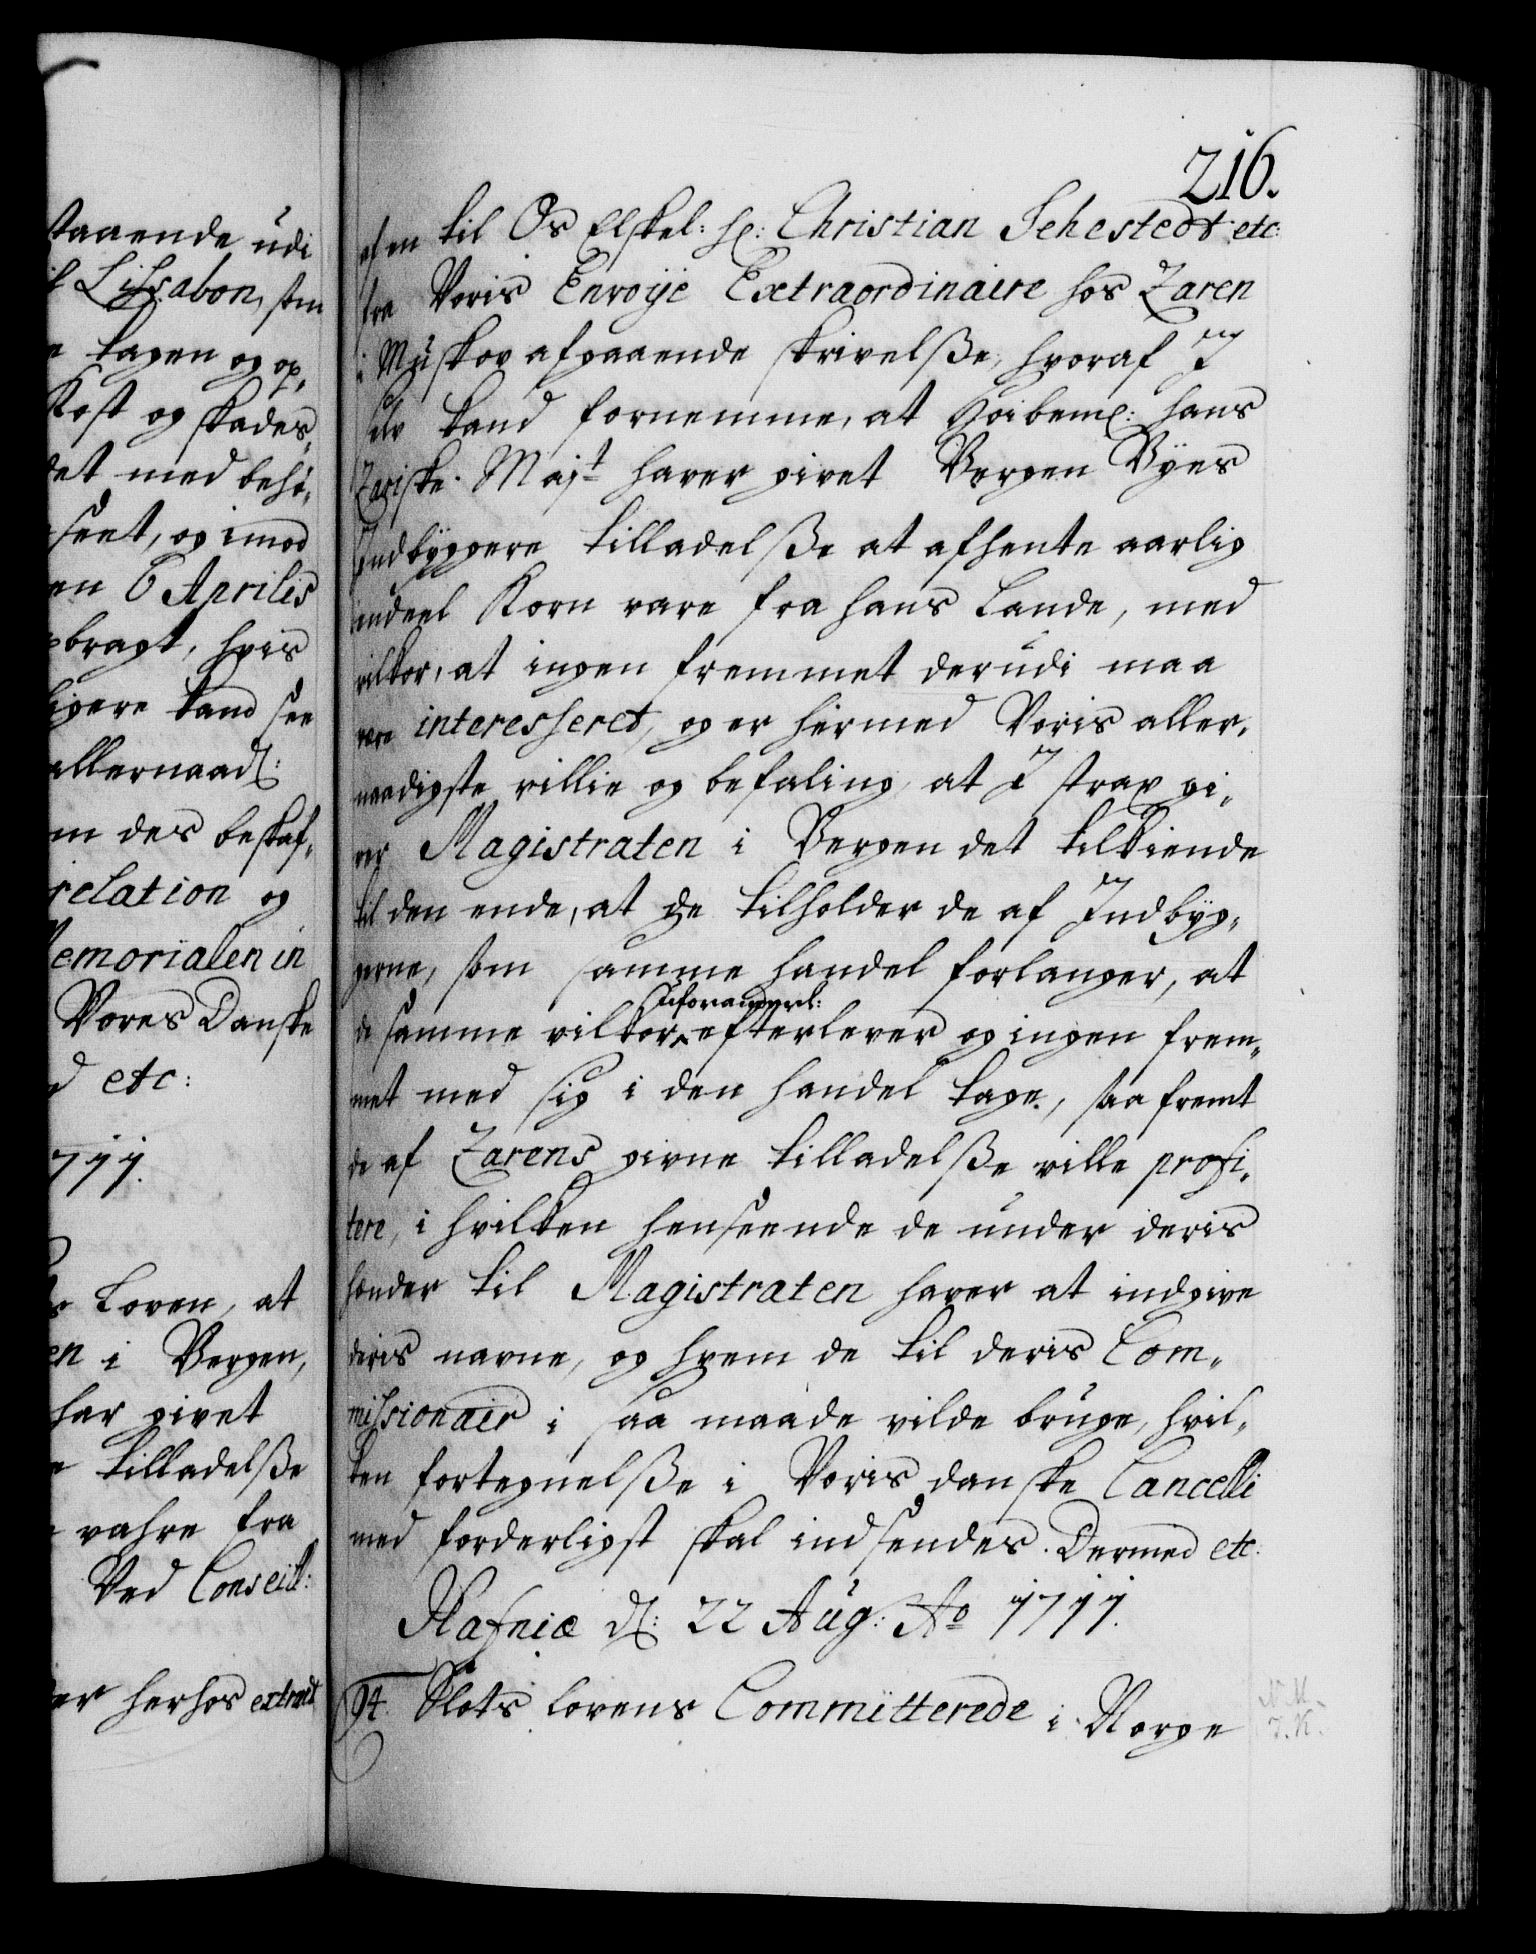 216.
taaende udi
Lissabon, som
tagen og op„
Kost og skades„
det med behø„
seet, og imod
en 6 Aprilis
bragt, hvis
igere kand see
allernaad:
m des beskaf„
relation og
Memorialen in
Vores Danske
d etc:
1711.
Loven, at
en i Bergen,
har givet
tilladelsse
vahre fra
Ved Conseill:
er herhos extract
af en til Os Elskel: Hr: Christian Sehestedt etc:
fra Voris Envoÿe Extraordinaire hos Zaren
i Muskov afgaaende skrivelsse, hvoraf I
selv kand fornemme, at høibemt: hans
Zariske Majt haver givet Bergen Byes
Indbÿggere tilladelsse at afhente aarlig
endeel Korn vare fra hans Lande, med
vilkor, at ingen fremmet derudi maa
være interesseret, og er hermed Voris aller„
naadigste villie og befaling, at I strax gi„
ver Magistraten i Bergen det tilkiende
til den ende, at de tilholder de af Indbÿg„
gerne, som samme handel forlanger, at
de samme vilkor uforanderl: efterlever og ingen frem„
met med sig i den handel tage, saa fremt
de af Zarens givne tilladelsse ville profi„
tere, i hvilken henseende de under deris
hænder til Magistraten haver at indgive
deris navne, og hvem de til deris Com„
missionair i saa maade vilde bruge, hvil„
ken fortegnelsse i Voris danske Cancelli
med forderligst skal indsendes. Dermed etc:
Hafniæ d: 22 Aug: Ao 1711.
94. Slots Lovens Committerede i Norge
N. M.
J. K.